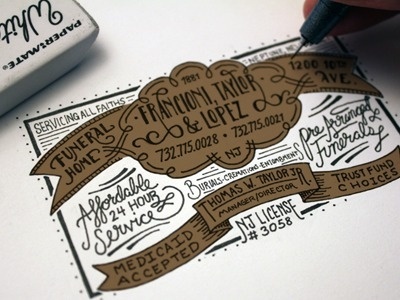 PAPERMATE
White
1881
SERVICING ALL FAITHS
NEPTUNE, NJ
FUNERAL
HOME
FRANCIONI, TAYLOR
& LOPEZ
1200 10TH
AVE.
732.775.0028 • 732.775.0021
NJ
Affordable
24 HOUR
Service
BURIALS•CREMATIONS•ENTOMBMENTS
Pre Arranged
Funerals
THOMAS W. TAYLOR JR.
MANAGER/DIRECTOR
NJ LICENSE
# 3058
MEDICAID
ACCEPTED
TRUST FUND
CHOICES